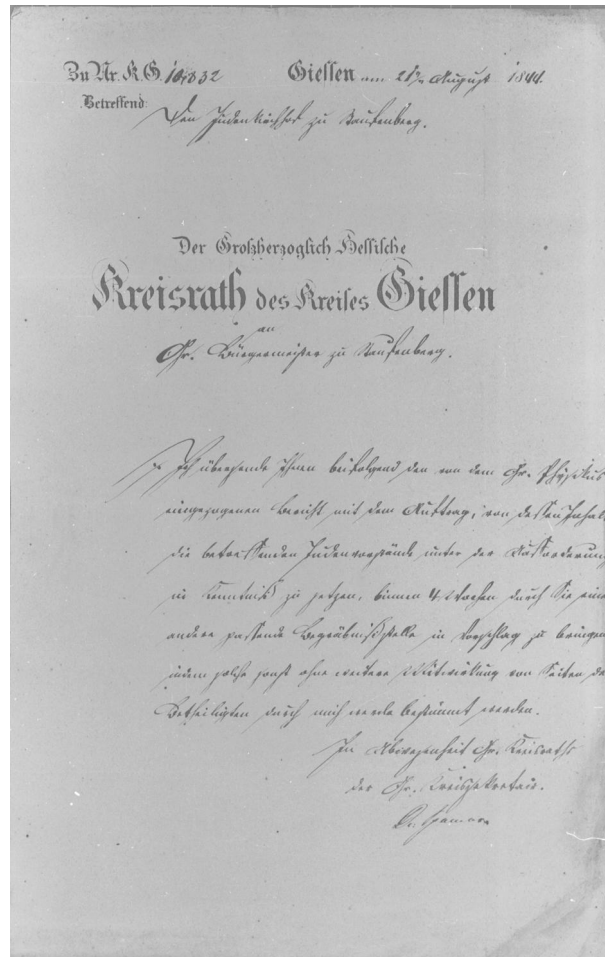 Zu Nr. K. G. 10,832 Giessen am 21ten August 1844.
Betreffend:
Den Judenkirchhof zu Staufenberg.
Der Großherzoglich Hessische
Kreisrath des Kreises Giessen
an
Gr. Bürgermeister zu Staufenberg.
Ich übersende Ihnen beifolgend den von dem Gr. Physikus
eingezogenen Bericht mit dem Auftrag, von dessen Inhalt
die betreffenden Judenvorstände unter der Aufforderung
in Kenntniß zu setzen, binnen 4 Wochen durch Sie eine
andere passende Begräbnißstelle in Vorschlag zu bringen
indem solche sonst ohne weitere Mitwirkung von Seiten der
Betheiligten durch mich werde bestimmt werden.
In Abwesenheit Gr. Kreisraths
der Gr. Kreissekretair.